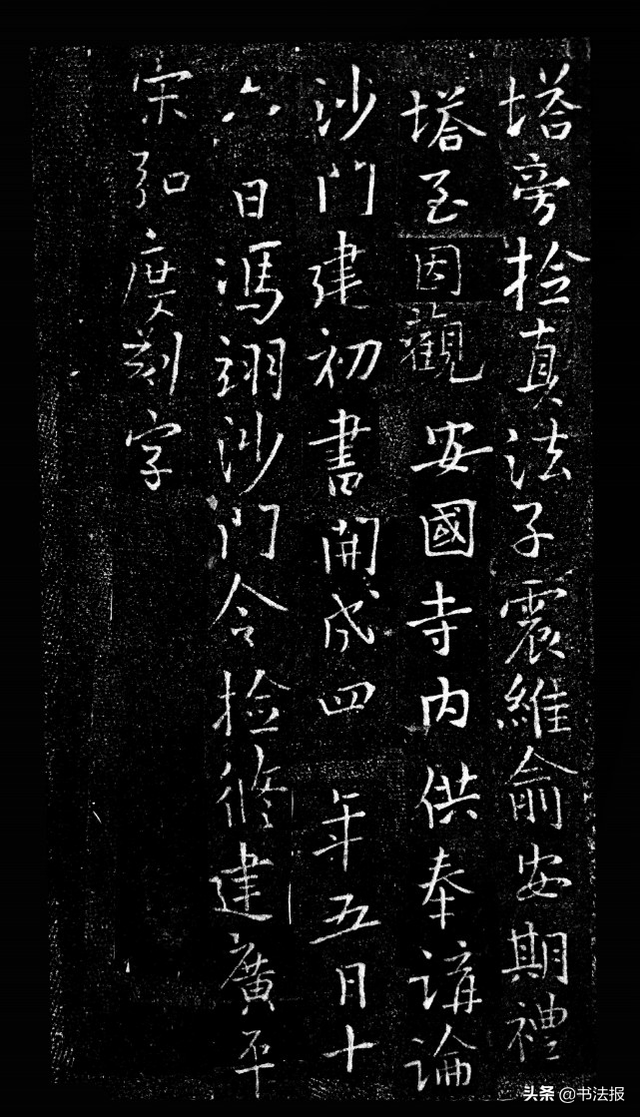 塔旁捡真法子震維俞安期禮
塔至因觀安國寺内供奉講論
沙門建初書開成四年五月十
六日馮翊沙門令捡脩建廣平
宋弘度刻字
头条 @书法报